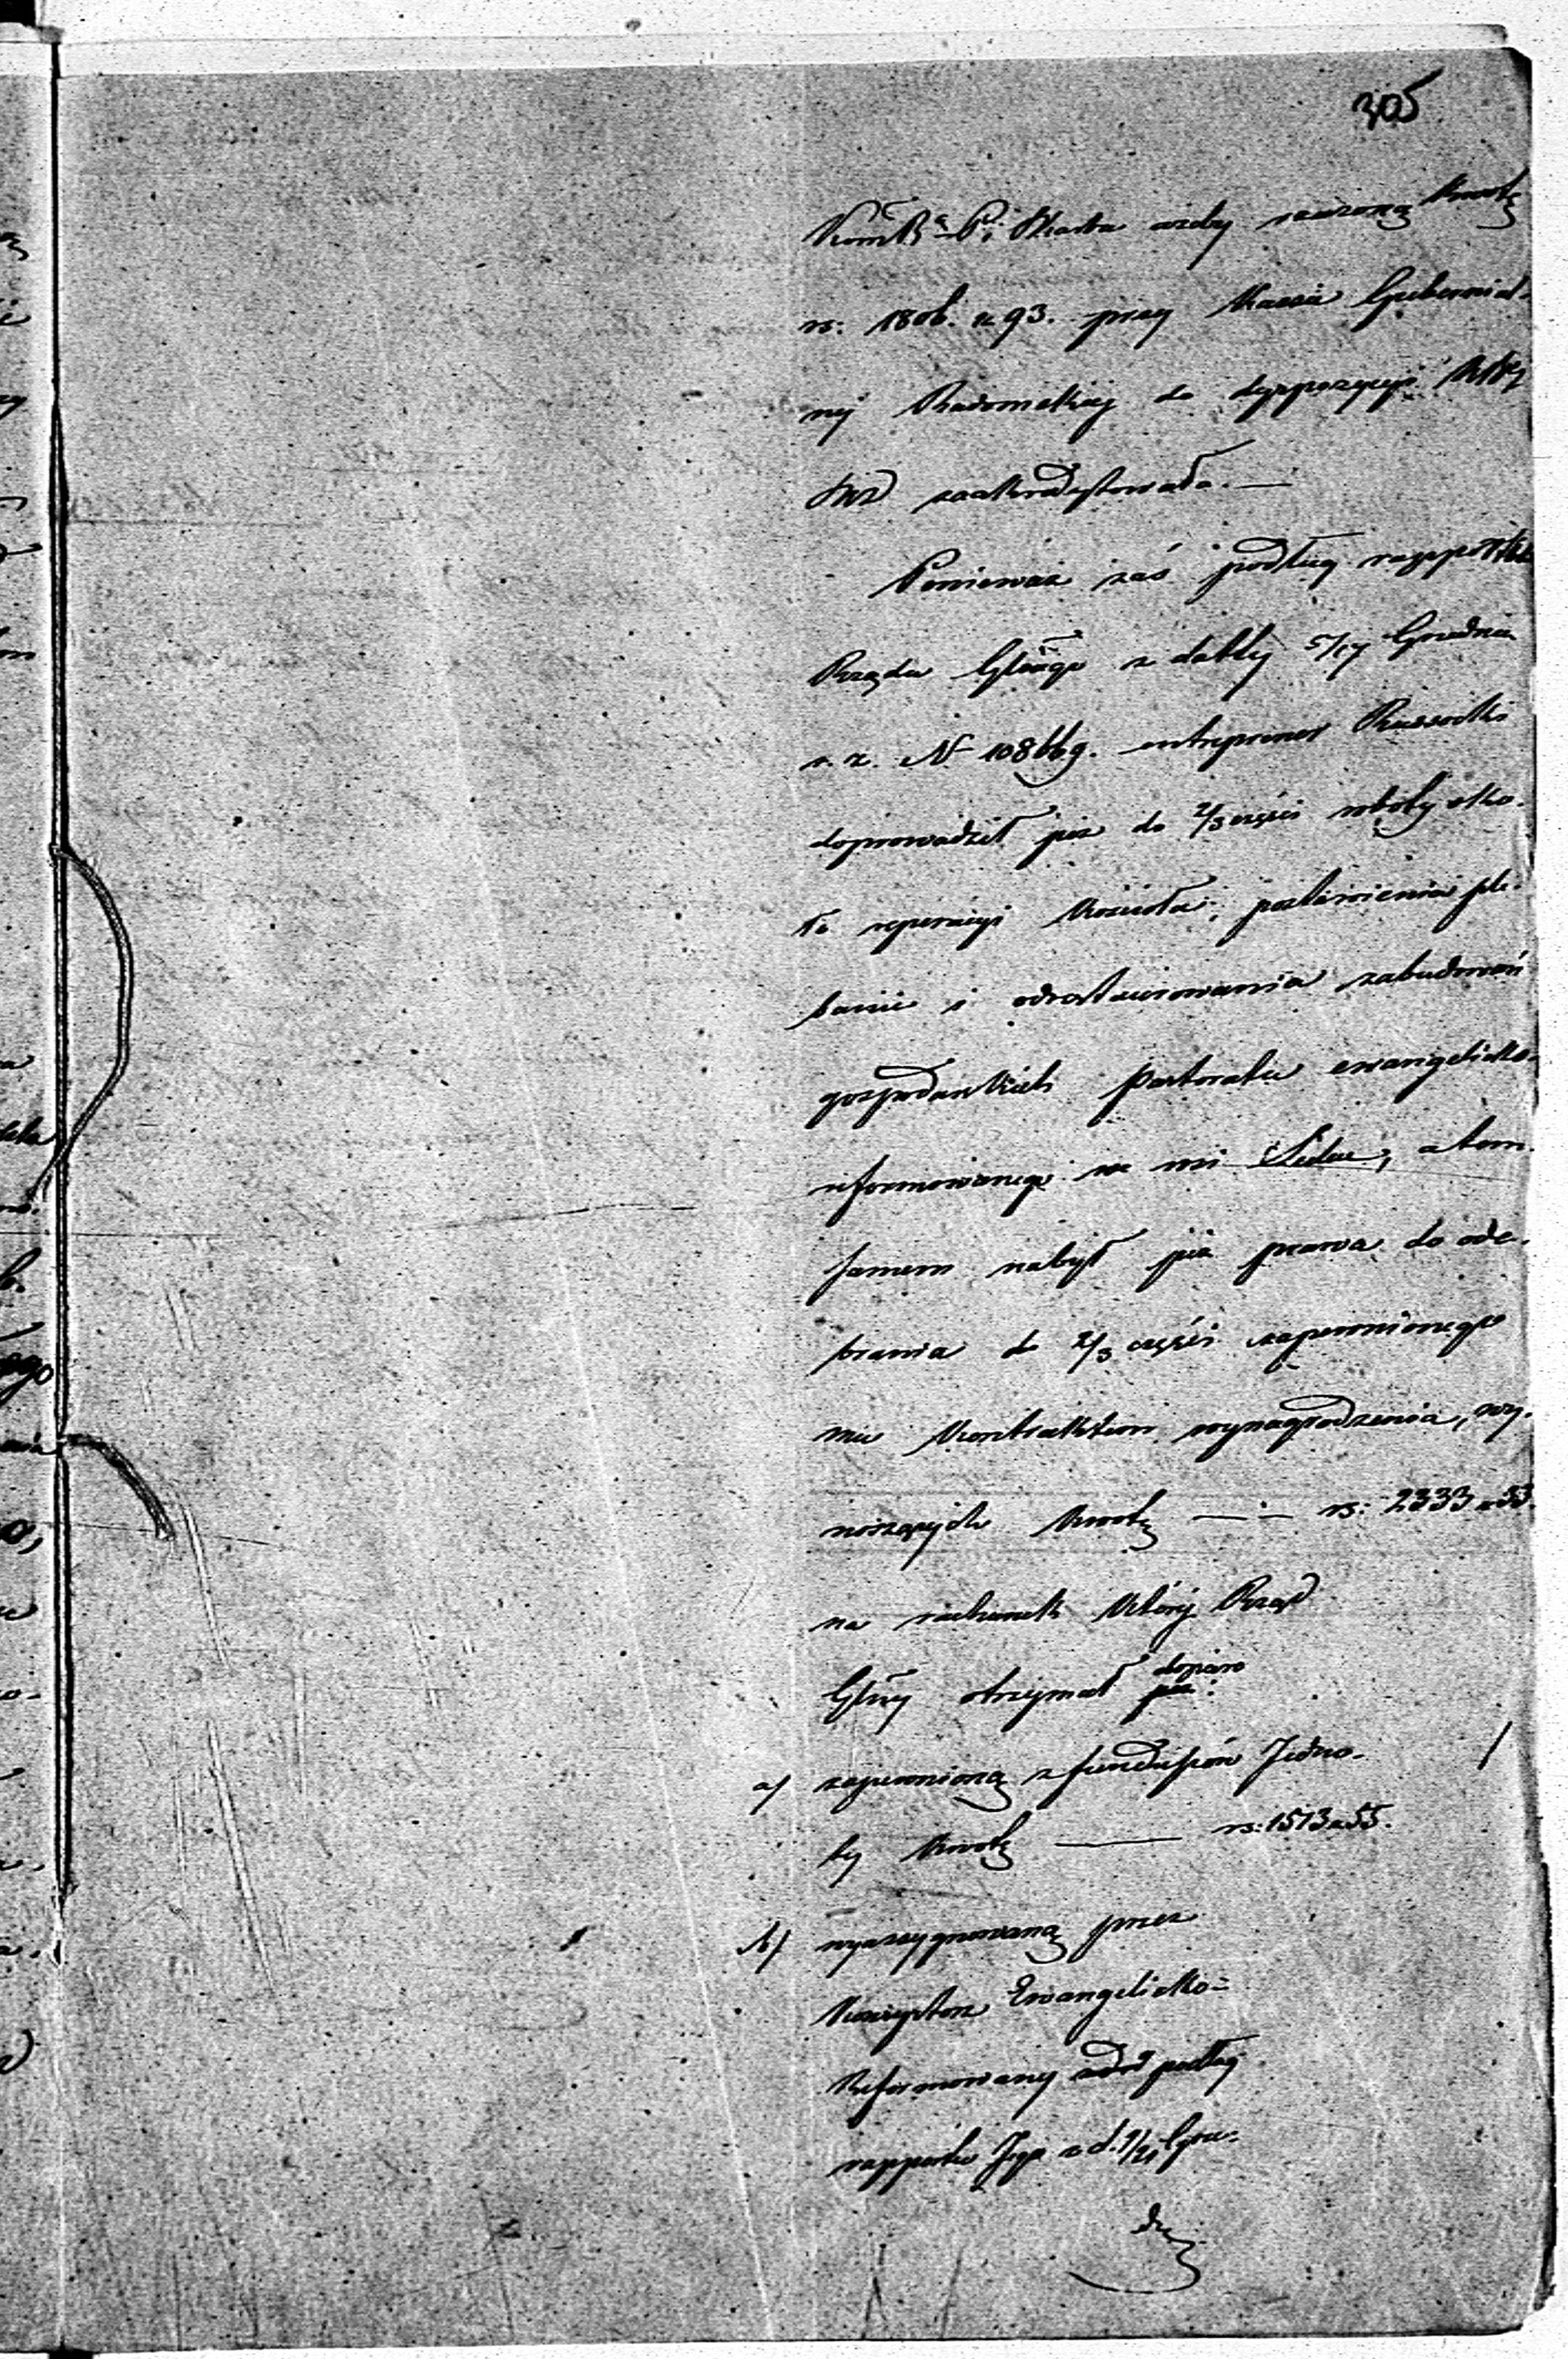 305
Kom Rz P i Skarba ażeby rzeczoną kwotę
rs: 1806. k 93. przy Kassie Gubernial-
nej Radomskiej do dyspozycyi
zaakredytowała. —
Ponieważ zaś podług rapportu
Rządu Glnego z dabty 5/17 Grudnia
r. z. N 108669. entreprener Russocki
doprowadził już do 2/3 części roboty oko-
ło reperacyi kościoła, postawienia ple-
banii i odrestaurowania zabudowań
gospodarskich Pastoratu ewangelicko-
reformowanego we wsi Sielec, a tem
samem nabył już prawa do ode-
brania do 2/3 części zapewnionego
mu kontraktem wynagrodzenia, wy-
noszących kwotę — — rs: 2333 k 33.
na rachunek której Rząd
Glny otrzymał dopiero
już:
a/ zapewnioną z funduszów Jedno-
ty kwotę — rs: 1513 k 55.
b/ wyassygnowaną przez
Konsystorz Ewangelicko-
Reformowany podług
rapportu Jego z d. 9/21 Gru-
dn